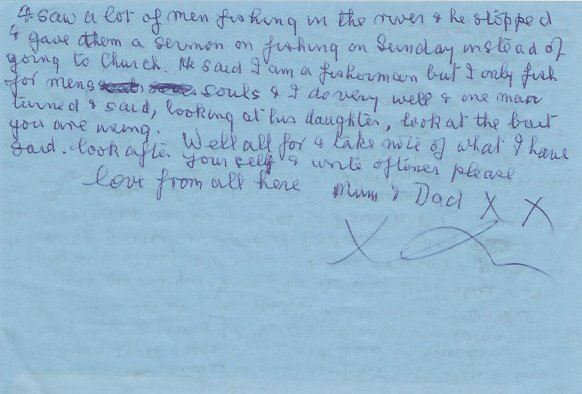 & saw a lot of men fishing in the river & he stopped
& gave them a sermon on fishing on Sunday instead of
going to Church. He said I am a fisherman but I only fish
for mens souls & I do very well & one man
turned & said, looking at his daughter, look at the bait
you are using.
Well all for & take note of what I have
said. look after yourself & write oftener please
love from all here Mum & Dad X X
X